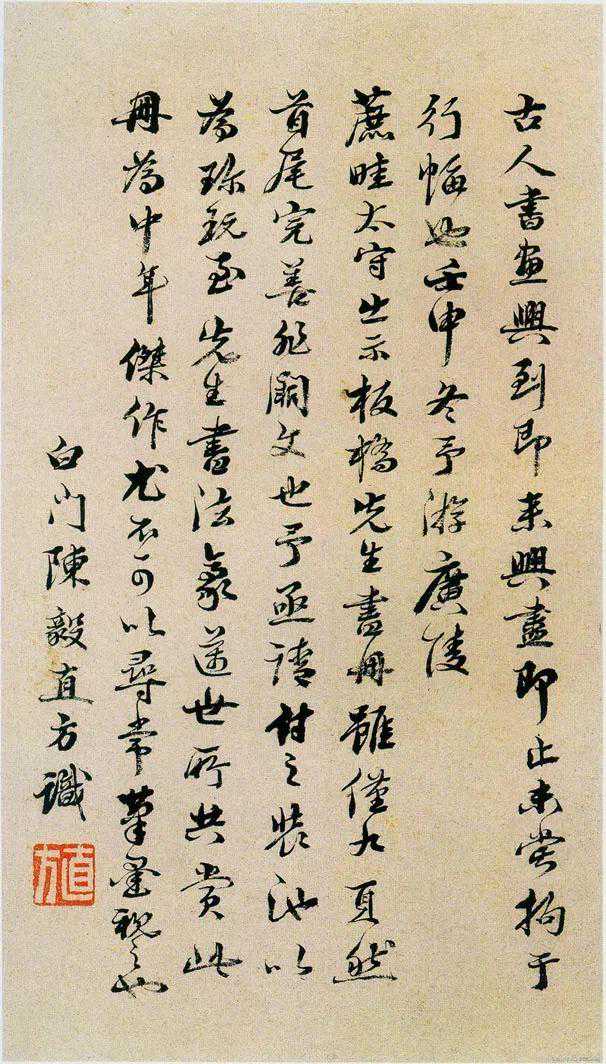 古人書畫興到即来興盡即止未嘗拘于
行幅也壬申冬予游廣陵
蔗畦太守出示板橋先生畫冊雖僅九頁然
首尾完善非闕文也予亟請付之裝池以
為珎玩至先生書法豪遒世所共賞此
冊為中年傑作尤不可以尋常筆墨視之也
白門陳毅直方識
直方